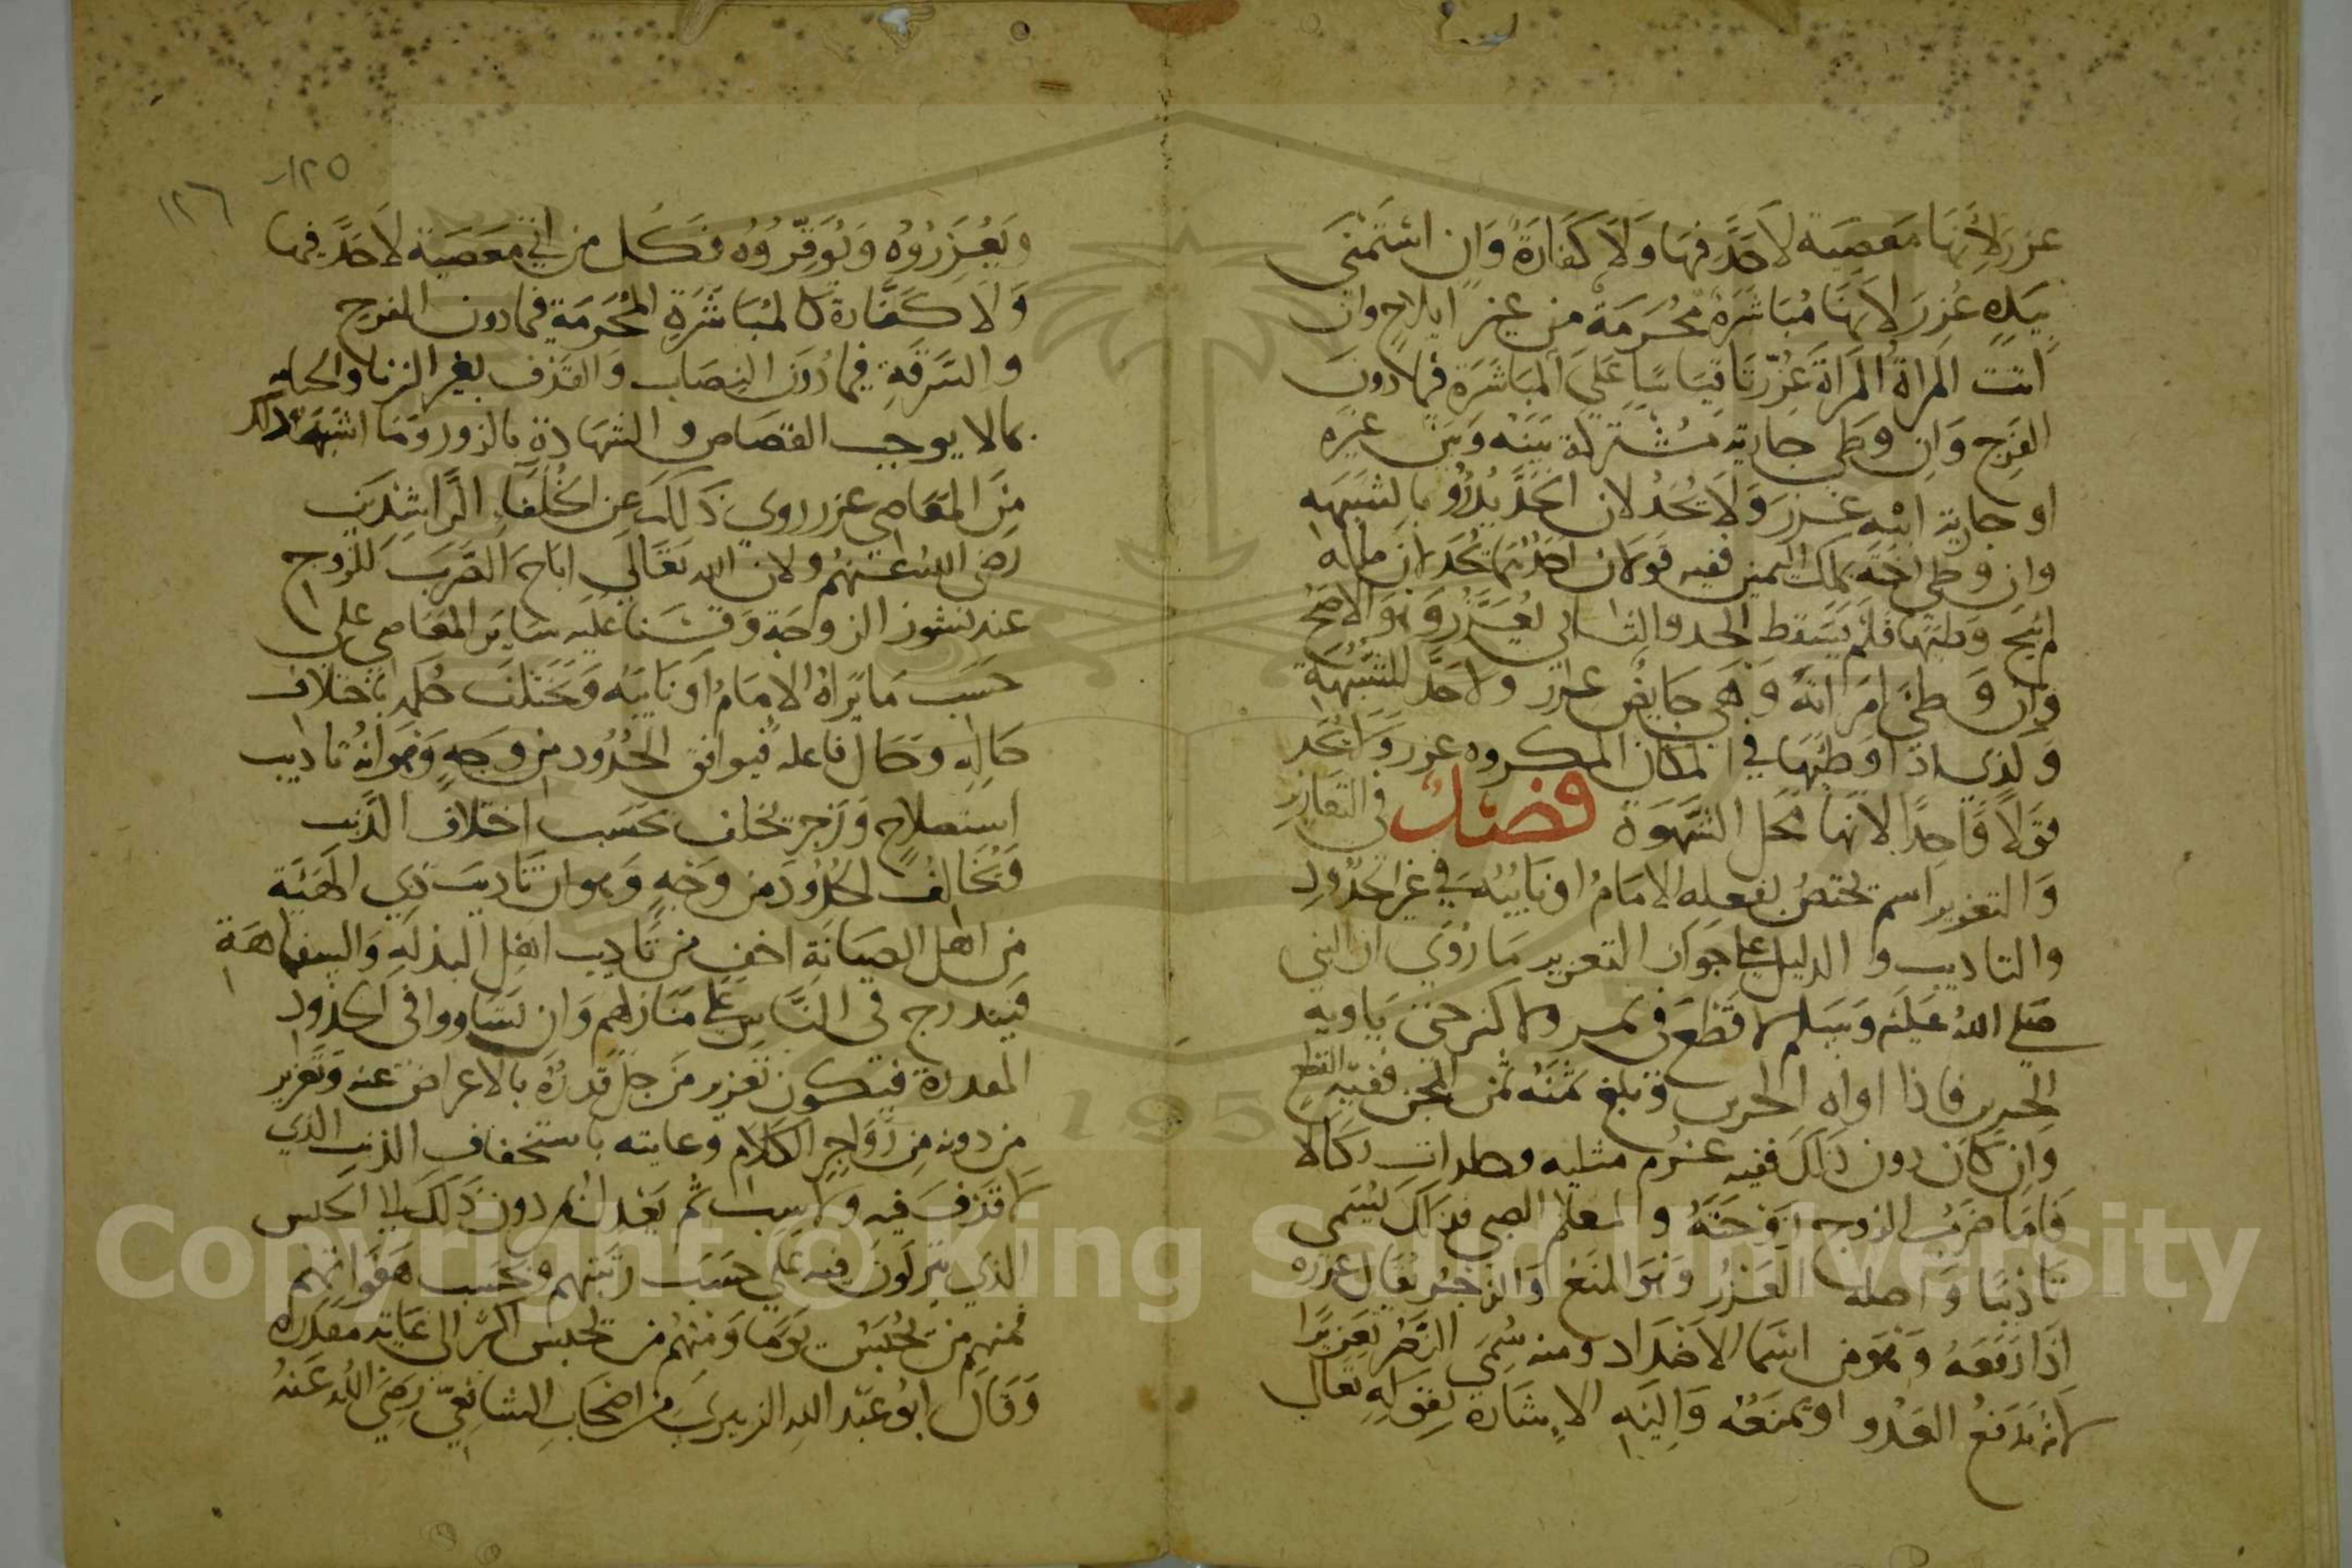 عزر لانها معصية لا حد فيها ولا كفارة وان استمنى
بيده عزر لانها مباشرة محرمة من غير ايلاج وان
اتت المراة المراة عزرتا قياسا على المباشرة فيما دون
الفرج وان وطي جارية مشتركة بينه وبين غيره
او جارية ابنه عزر ولا يحد لان الحد يدرؤ بالشبهه
وان وطي اخته بملك اليمين ففيه قولان احدهما يحد لان ملكه
لم يبح وطئها فلم يسقط الحد والثاني يعزر وهو الاصح
وان وطئ امراته وهي حايض عزر ولا حد للشبهة
ولذى اذا وطئها في المكان المكروه عزر ولا يحد
قولا واحدا لانها محل الشهوة فصل في التعازير
والتعزير اسم يختص بفعله الامام او نايبه في غير الحدود
والتاديب والدليل على جواز التعزير ما روي ان النبي
صلى الله عليه وسلم لا قطع في تمر ولا كثر حتى ياويه
الجرين فاذا اواه الجرين وبلغ ثمنه ثمن المجن ففيه القطع
وان كان دون ذلك ففيه غرم مثليه وجلدات نكالا
فاما ضرب الزوج زوجته والمعلم الصبي فذلك يسمى
تاديبا واصله العزر وهو المنع والزجر يقال عزره
اذا دفعه وهو من اسما الاضداد ومنه سمي النصر تعزيرا
لانه يدفع العدو او يمنعه واليه الاشارة بقوله تعالى
١٢٥
١٢٦
ويعزروه ويوقروه فكل من اتى معصية لا حد فيها
ولا كفارة كالمباشرة المحرمة فيما دون الفرج
والسرقة فيما دون النصاب والقذف بغير الزنا والجنايه
بمالا يوجب القصاص والشهادة بالزور وما اشبه ذلك
من المعاصي عزر روي ذلك عن الخلفاء الراشدين
رضى الله عنهم ولان الله تعالى اباح الضرب للزوج
عند نشوز الزوجة وقسنا عليه ساير المعاصي على
حسب ما يراه الامام او نايبه ويختلف حكمه باختلاف
حاله وحال فاعله فيوافق الحدود من وجه وهو انه تاديب
استصلاح وزجر يختلف بحسب اختلاف الذنب
ويخالف الحدود من وجه وهو ان تاديب ذي الهيئة
من اهل الصيانة اخف من تاديب اهل البذله والسفاهة
فيندرج في الناس على منازلهم وان تساووا في الحدود
المقدرة فيكون تعزير من جل قدره بالاعراض عنه وتعزير
من دونه من زواجر الكلام وغايته باستخفاف الذنب الذي
لا قذف فيه ولا سب ثم يعدل من دون ذلك الى الحبس
الذي ينزلون فيه على حسب رتبتهم وبحسب هفواتهم
فمنهم من يحبس يوما ومنهم من يحبس اكثر الى غاية مقدره
وقال ابو عبد الله الزبيري من اصحاب الشافعي رضي الله عنه
Copyright © King Saud University
195